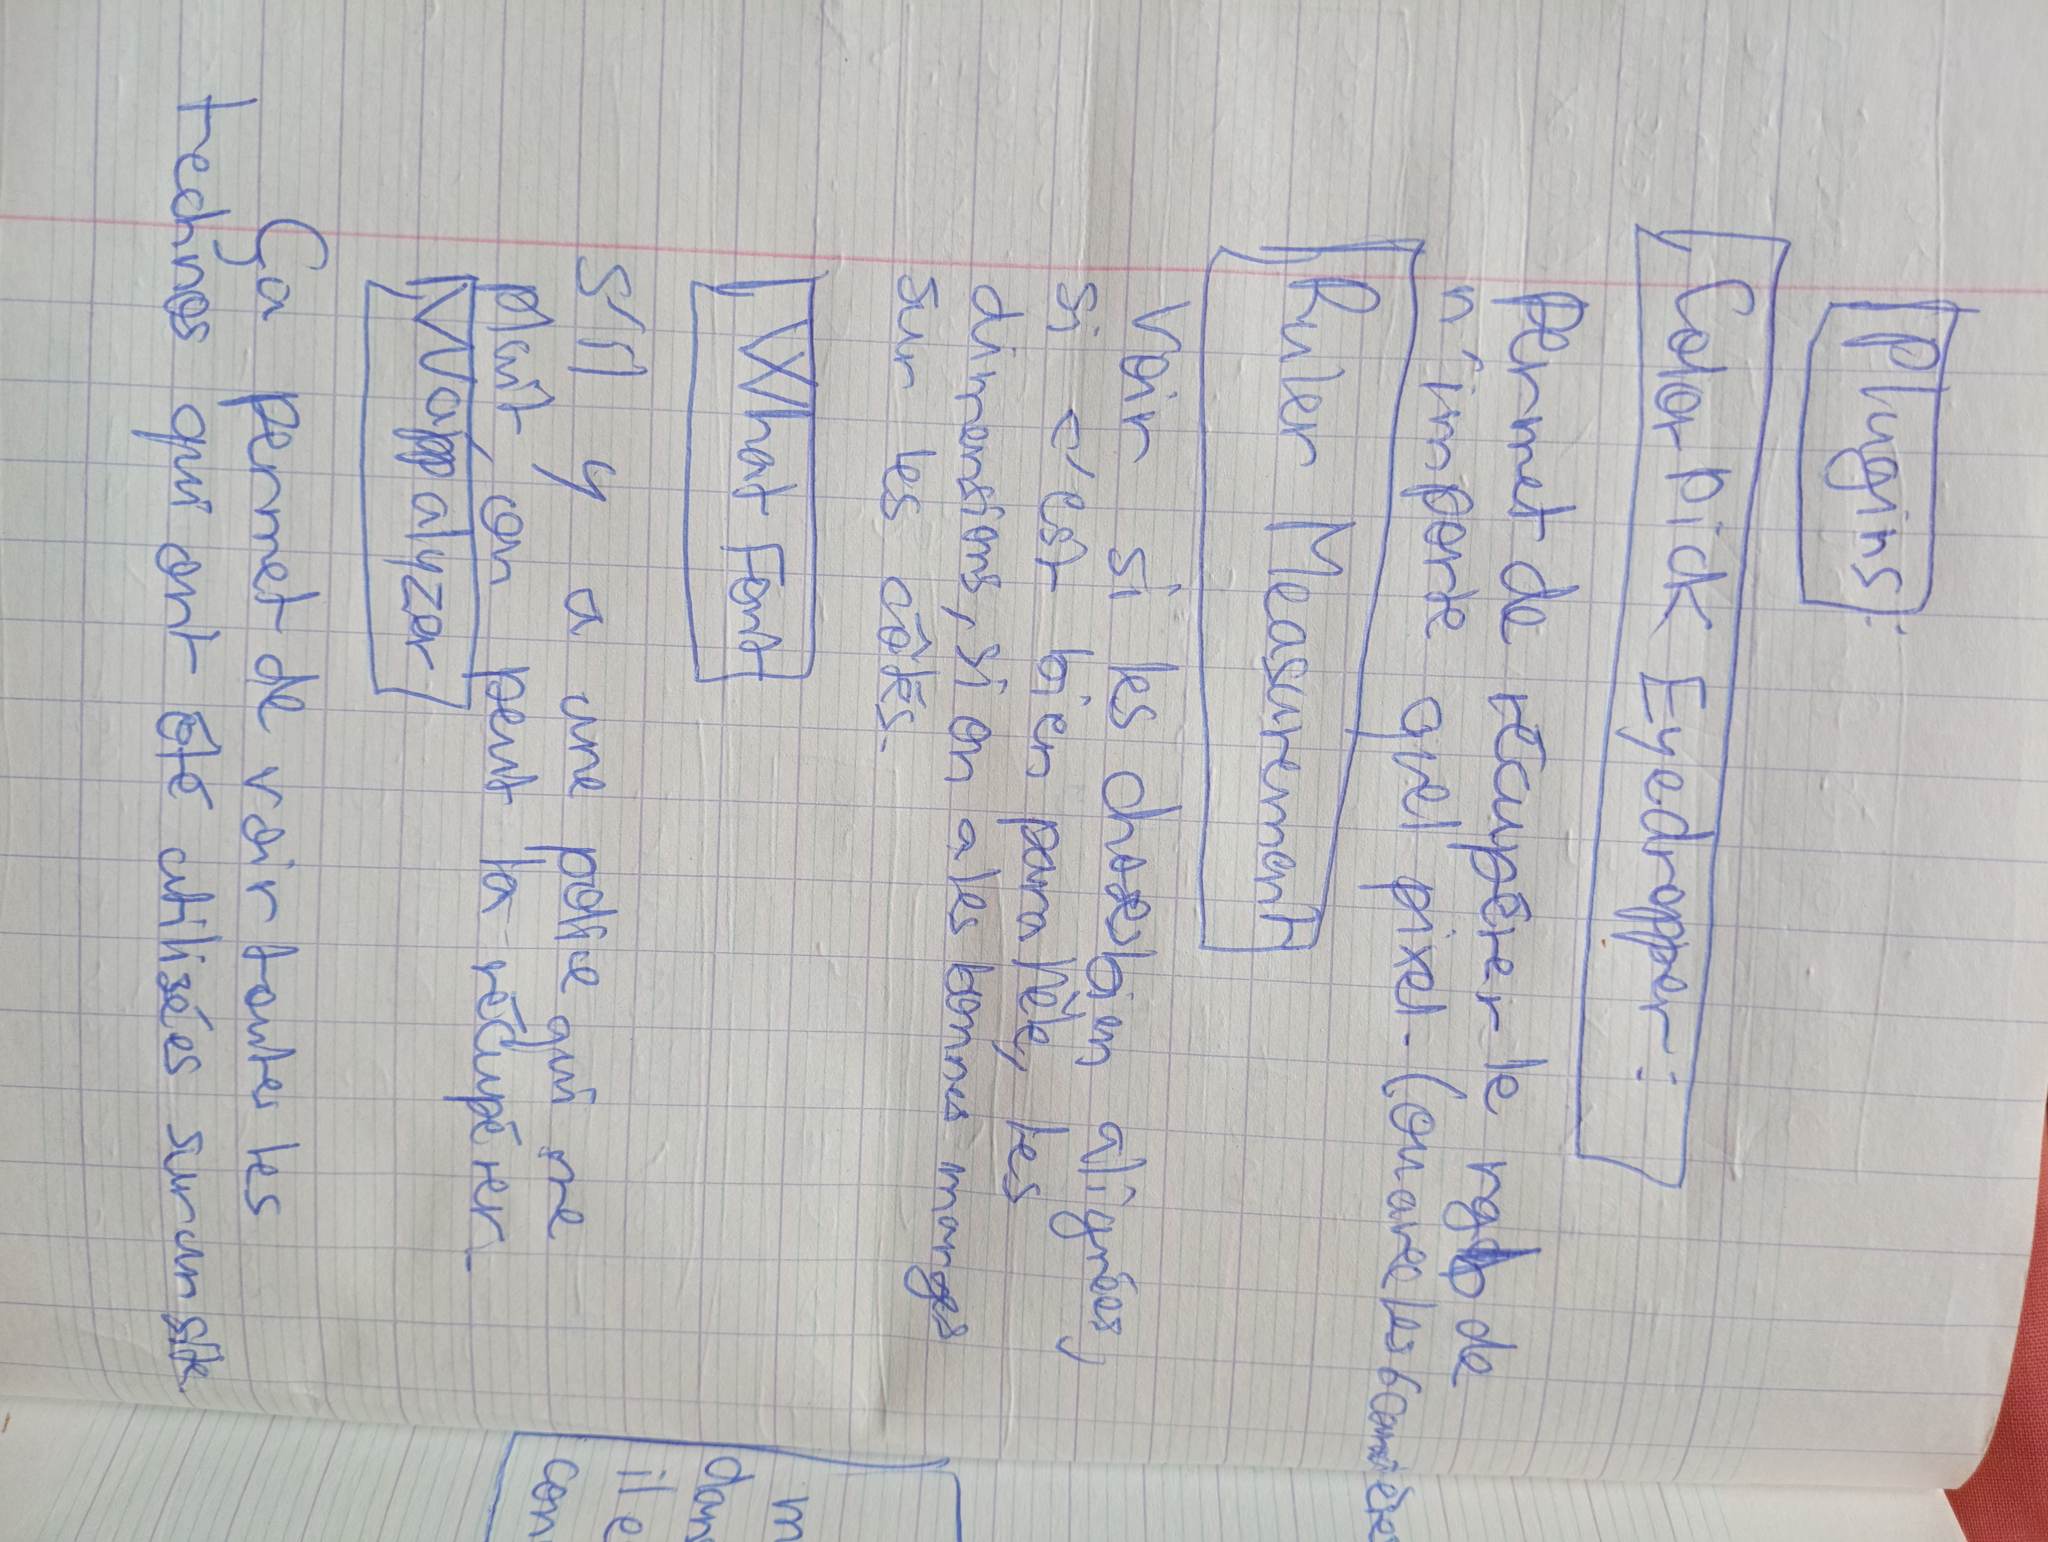 Plugins :
Color Pick Eyedropper :
Permet de récupérer le rgb de
n'importe quel pixel. (ou avec les 6 caractères
Ruler Measurement
Voir si les choses bien alignées,
si c'est bien parallèle, les
dimensions, si on a les bonnes marges
sur les côtés.
What Font
S'il y a une police qui me
plaît, on peut la récupérer.
Wappalyzer
Ça permet de voir toutes les
technos qui ont été utilisées sur un site
m
dans
il e
con